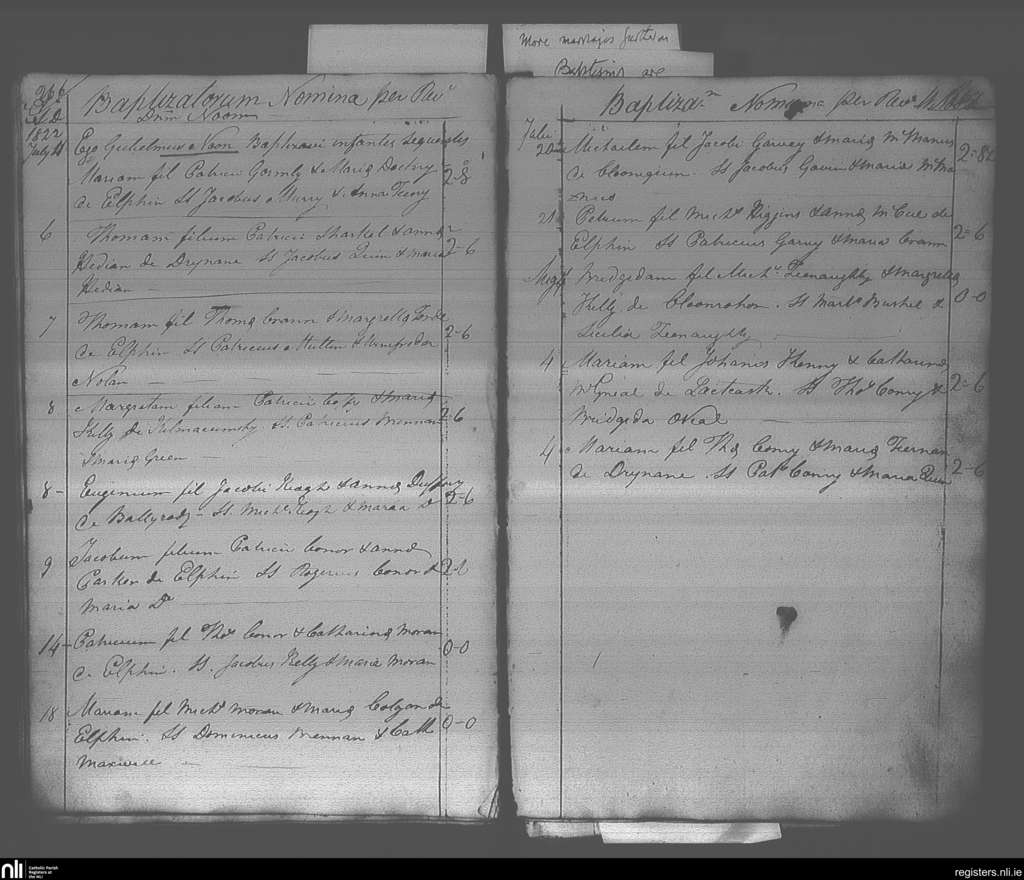 More marriages further on
Baptisms are
266
A.D.
1822
Baptizatorum Nomina per Revd
Dnm Noon
July 4 Ego Gulielmus Noon Baptizavi infantes sequentes
Mariam fil Patricii Gormly & Maria
de Elphin Ss Jacobus Murry & Anna Feeny
2-8
6 Thomam filium Patricii Sharket & anna
Hedian de Drynane Ss Jacobus Quin & maria
2-6
Hedian
7 Thomam fil Thoma Crann & margretta
de Elphin Ss Patricius Mullen & Winefreda
2-6
Nolan
8 Margretam filiam Patricii & Maria
Kelly de Ss Patricius Brennan
2-6
& Maria Green
8 - Eugenium fil Jacobi Keagh & anna
de Ss Michl Keagh & maria do
2-6
9 Jacobum filium Patricii Conor & anna
Parker de Elphin Ss Rogerius Conor &
Maria Do
14 - Patricium fil Thos Conor & Catharina Moran
0-0
de Elphin. Ss. Jacobus Kelly & Maria Moran
18 Mariam fil Michl moran & Maria de
Elphin. Ss Dominicus Brennan & Cath
0-0
Maxwell
Baptiza.m Nomina per Revd
July
20 Michaelem fil Jacobi Garvey & maria McManus
de Ss Jacobus Gavin & Maria McMa
nus
21 Petrum fil Michl Higgins & anna McCue de
Elphin Ss Patricius Garvy & Maria Crann
2-6
Bridgedam fil Michl Feenaughty & Margretta
Kelly de Cloonrohan. Ss & 
0-0
Feenaughty
4 Mariam fil Johanis Kenny & Catharina
de Ss Thos Conry &
2-6
Bridgeda ONeal
4 Mariam fil Tho Conry & Maria Feernan
de Drynane. Ss Patk Conry & Maria Quin
2-6
nli
Catholic Parish
Registers at
the NLI
registers.nli.ie